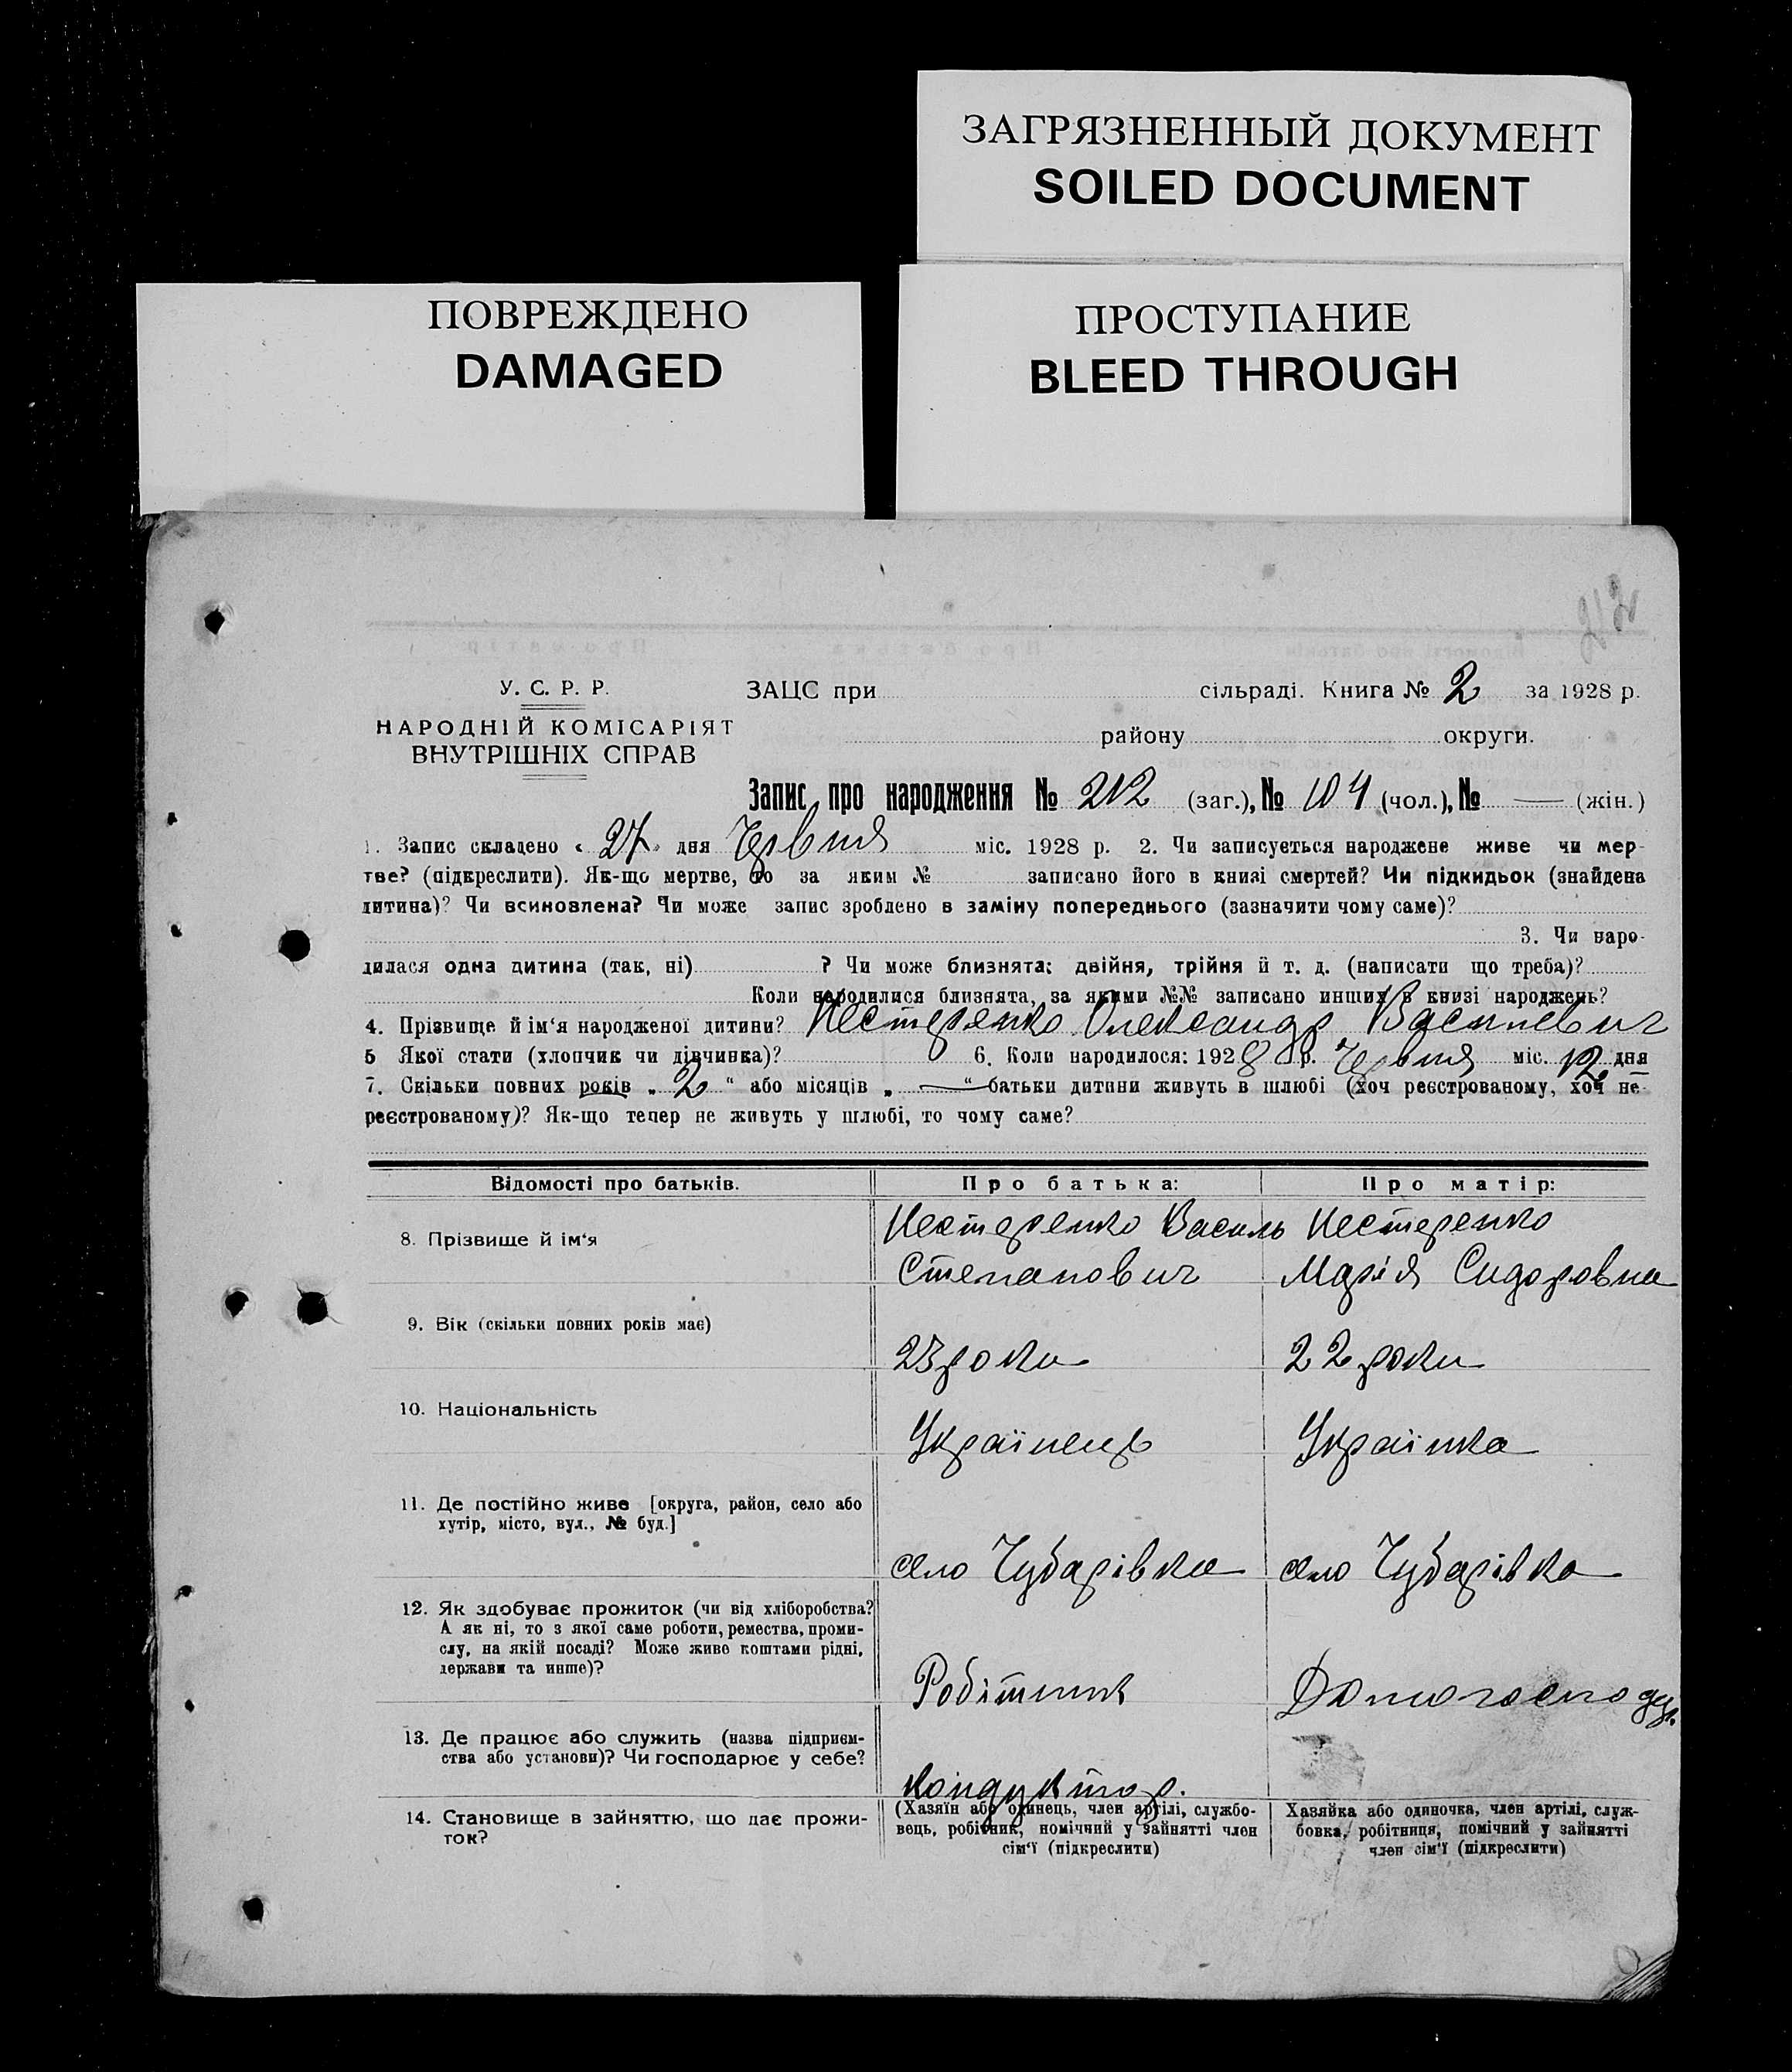 ЗАГРЯЗНЕННЫЙ ДОКУМЕНТ
SOILED DOCUMENT
ПОВРЕЖДЕНО
DAMAGED
ПРОСТУПАНИЕ
BLEED THROUGH
У. С. Р. Р.
НАРОДНІЙ КОМІСАРІЯТ
ВНУТРІШНІХ СПРАВ
ЗАЦС при сільраді. Книга № 2 за 1928 р.
району округи.
Запис про народження № 212 (заг.), № 104 (чол.), № — (жін.)
1. Запис складено « 27 » дня Червня міс. 1928 р. 2. Чи записується народжене живе чи мер-
тве? (підкреслити). Як-що мертве, то за яким № записано його в книзі смертей? Чи підкидьок (знайдена
дитина)? Чи всиновлена? Чи може запис зроблено в заміну попереднього (зазначити чому саме)?
3. Чи наро-
дилася одна дитина (так, ні) ? Чи може близнята: двійня, трійня й т. д. (написати що треба)?
Коли народилися близнята, за якими №№ записано инших в книзі народжень?
4. Прізвище й ім‘я народженої дитини? Нестеренко Олександр Васильевич
5 Якої стати (хлопчик чи дівчинка)? 6. Коли народилося: 1928 р. Червня міс. 12 дня
7. Скільки повних років „ 2 “ або місяців „ — “ батьки дитини живуть в шлюбі (хоч реєстрованому, хоч не-
реєстрованому)? Як-що тепер не живуть у шлюбі, то чому саме?
Відомості про батьків. Про батька: Про матір:
8. Прізвище й ім‘я Нестеренко Василь Нестеренко
Степанович Марія Сидоровна
9. Вік (скільки повних років має)
23 роки 22 роки
10. Національність
Українець Українка
11. Де постійно живе [округа, район, село або
хутір, місто, вул., № буд.]
село Чубарівка село Чубарівка
12. Як здобуває прожиток (чи від хліборобства?
А як ні, то з якої саме роботи, ремества, проми-
слу, на якій посаді? Може живе коштами рідні,
держави та инше)?
Робітник Домогосподар.
13. Де працює або служить (назва підприєм-
ства або установи)? Чи господарює у себе?
кондуктор.
14. Становище в зайняттю, що дає прожи-
ток?
(Хазяїн або одинець, член артілі, службо-
вець, робітник, помічний у зайнятті член
сім‘ї (підкреслити)
Хазяйка або одиночка, член артілі, служ-
бовка, робітниця, помічний у зайнятті
член сім‘ї (підкреслити)